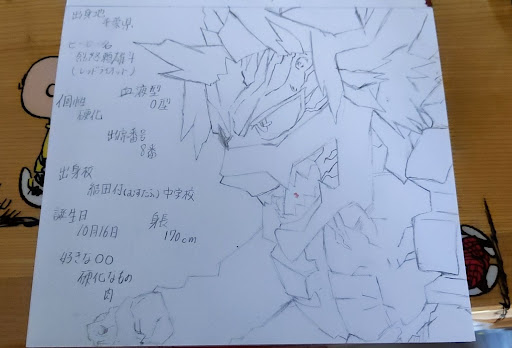 出身地
千葉県
ヒーロー名
烈怒頼雄斗
(レッドライオット)
血液型
O型
個性
硬化
出席番号
8番
出身校
結田付(むすたふ)中学校
誕生日
10月16日
身長
170cm
好きな○○
硬化なもの
肉